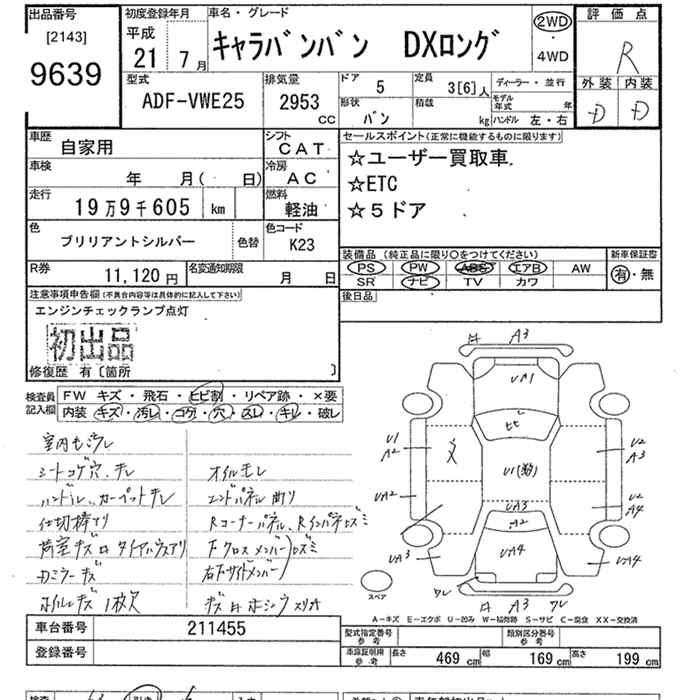 出品番号
[2143]
9639
初度登録年月
平成
21 7月
車名・グレード
キャラバンバン DXロング
2WD
4WD
評価点
R
外装 内装
D D
型式
ADF-VWE25
排気量
2953 cc
ドア
5
定員
3[6]人
ディーラー・並行
形状
バン
積載
kg
モデル年式
年
ハンドル 左・右
車歴
自家用
シフト
CAT
車検
年 月( 日)
冷房
AC
走行
19万9千605 km
燃料
軽油
色
ブリリアントシルバー
色替
色コード
K23
R券
11,120円
名変通知期限
月 日
セールスポイント(正常に機能するものに限ります)
☆ユーザー買取車.
☆ETC
☆5ドア
装備品(純正品に限り○をつけてください)
PS PW ABS エアB AW
SR ナビ TV カワ
新車保証書
有・無
後日品
注意事項申告欄(不具合内容等は具体的に記入して下さい)
エンジンチェックランプ点灯
初出品
修復歴 有〔箇所 〕
検査員記入欄
FW キズ・飛石・ヒビ割・リペア跡・×要
内装 キズ・汚レ・コゲ・穴・スレ・キレ・破レ
室内モヨウレ
シートコゲ穴、キレ
オイルモレ
ハンドルレ、カーペットキレ
エンドパネル曲り
仕切棒アリ
Rコーナーパネル、Rインパネヒズミ
荷室キズ凹 タイヤハウスアリ
Fクロスメンバー ヒズミ
ミラーキズ
右Fサイドメンバー
ホイルキズ 1枚欠
キズ凹ホシウスリオ
凹 A3
UA1
ヒビ
U1
A2
U2
A3
UA2
U2
A4
UA3
A2
UA3
UA4
UA4
ワレ
凹 A3 ワレ
スペア
A-キズ E-エクボ U-凹み W-補修跡 S-サビ C-腐食 XX-交換済
車台番号
211455
登録番号
型式指定番号
参考
類別区分番号
参考
車庫証明用
参考
長さ
469 cm
幅
169 cm
高さ
199 cm